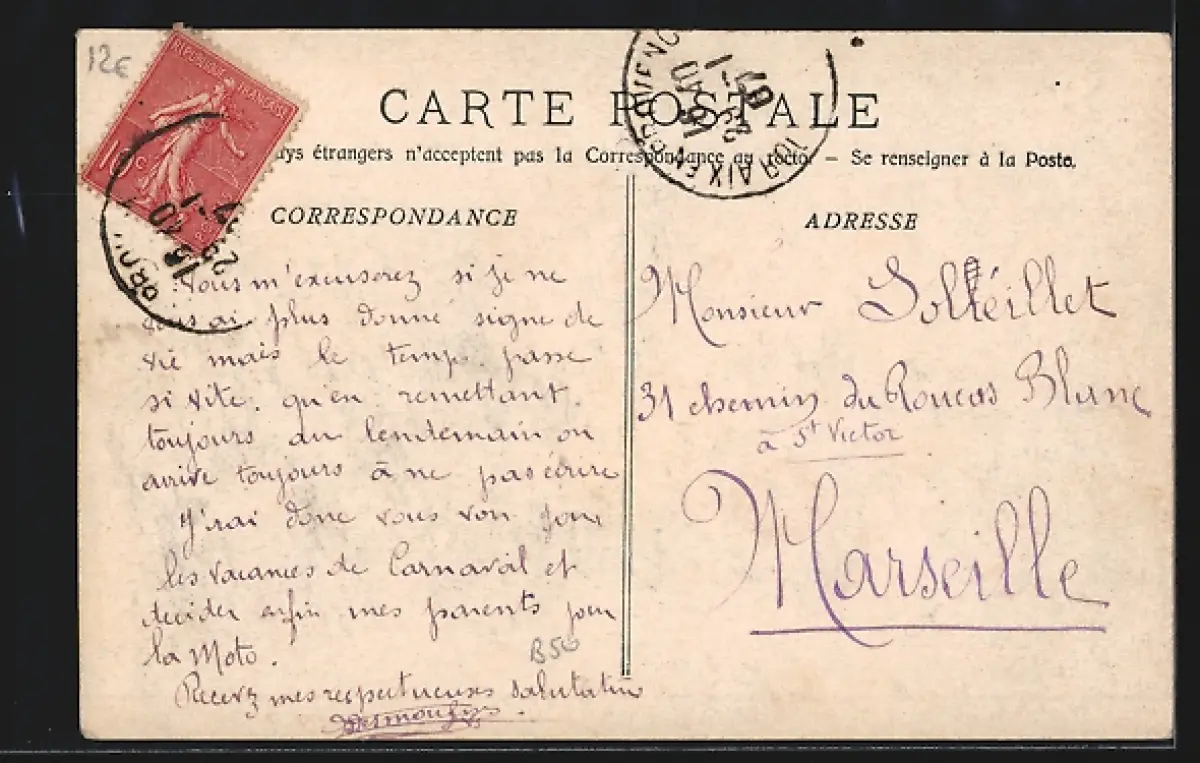 12€
REPUBLIQUE FRANÇAISE
10 c
CARTE POSTALE
ays étrangers n'acceptent pas la Correspondance au recto. – Se renseigner à la Poste.
AIX EN PROVENC
CORRESPONDANCE
Vous m'excuserez si je ne
vous ai plus donné signe de
vie mais le temps passe
si vite. qu'en remettant.
toujours au lendemain on
arrive toujours à ne pas écrire
J'irai donc vous voir pour
les vacances de Carnaval et
decider enfin mes parents pour
la Moto.
Recevez mes respectueuses salutations
B50
ADRESSE
Monsieur Solleillet
31 chemin du Roucas Blanc
à St Victor
Marseille